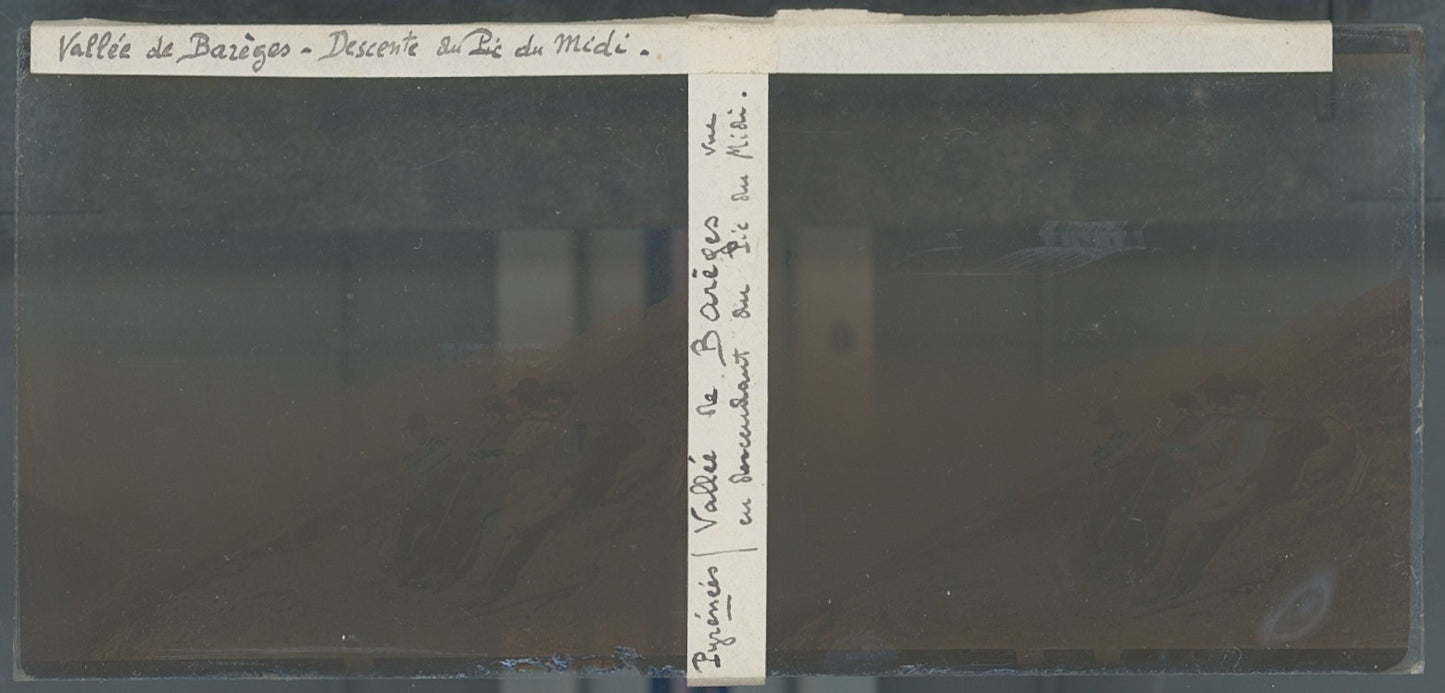 Vallée de Barèges - Descente du Pic du Midi.
Pyrénées / Vallée de Barèges vue
en descendant du Pic du Midi.